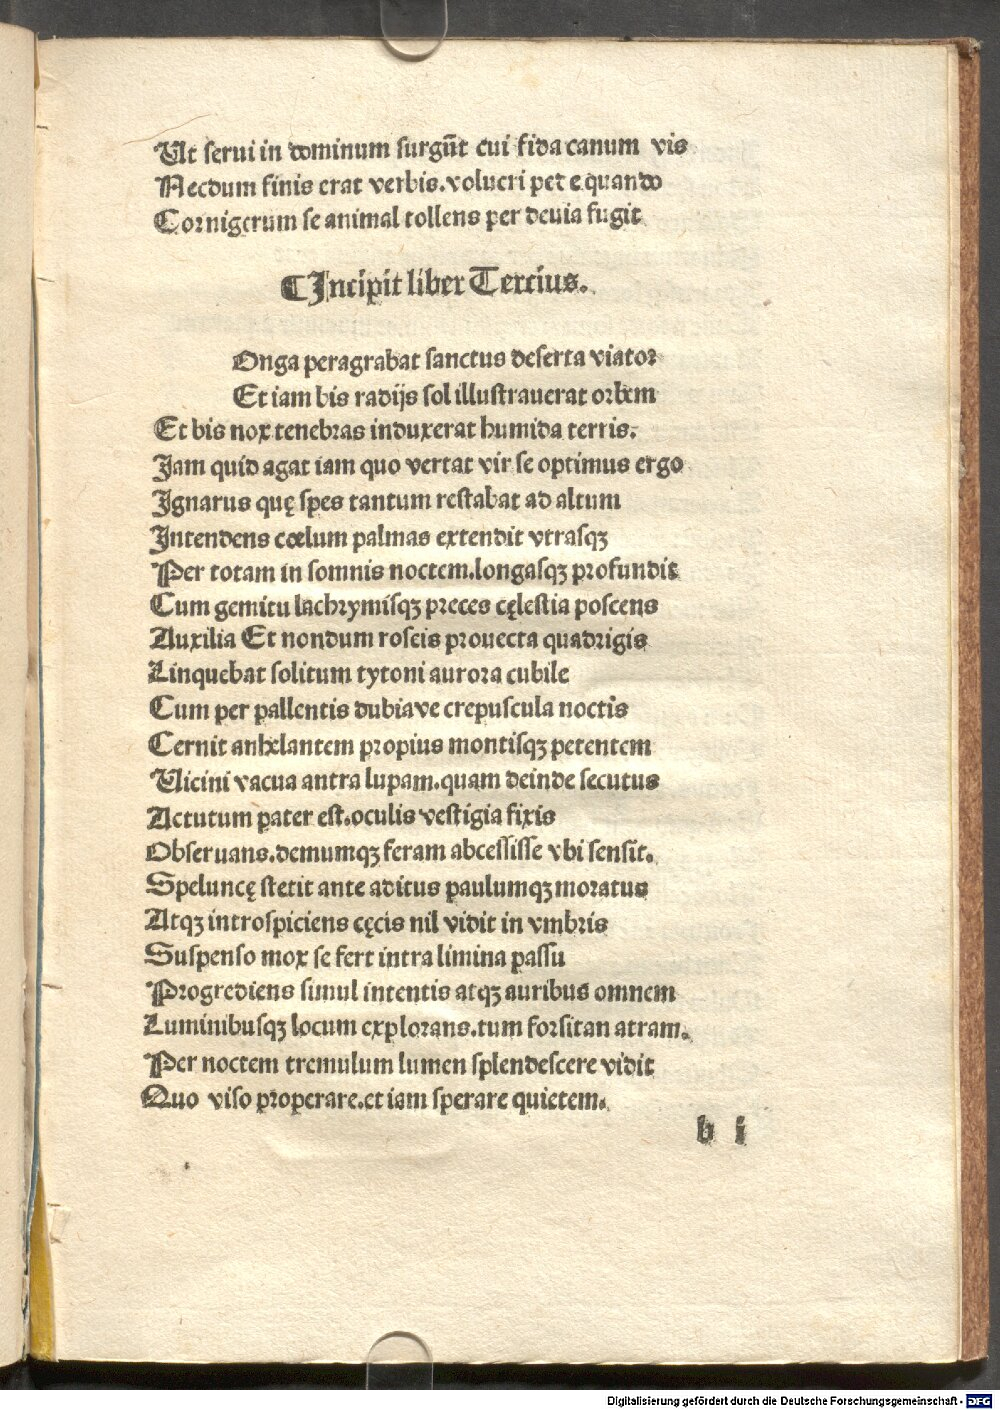 Ut serui in dominum surgūt cui fida canum vis
Necdum finis erat verbis.volucri pede quando
Cornigerum se animal tollens per deuia fugit
⸿Incipit liber Tercius.
Onga peragrabat sanctus deserta viator
Et iam bis radijs sol illustrauerat orbem
Et bis nox tenebras induxerat humida terris.
Iam quid agat iam quo vertat vir se optimus ergo
Ignarus quę spes tantum restabat ad altum
Intendens cœlum palmas extendit vtrasqꝫ
Per totam in somnis noctem.longasqꝫ profundit
Cum gemitu lachrymisqꝫ preces cęlestia poscens
Auxilia Et nondum roseis prouecta quadrigis
Linquebat solitum tytoni aurora cubile
Cum per pallentis dubiave crepuscula noctis
Cernit anhelantem propius montisqꝫ petentem
Uicini vacua antra lupam.quam deinde secutus
Actutum pater est.oculis vestigia fixis
Obseruans.demumqꝫ feram abcessisse vbi sensit.
Speluncę stetit ante aditus paulumqꝫ moratus
Atqꝫ introspiciens cęcis nil vidit in vmbris
Suspenso mox se fert intra limina passu
Progrediens simul intentis atqꝫ auribus omnem
Luminibusqꝫ locum explorans.tum forsitan atram.
Per noctem tremulum lumen splendescere vidit
Quo viso properare.et iam sperare quietem.
b i
Digitalisierung gefördert durch die Deutsche Forschungsgemeinschaft - DFG